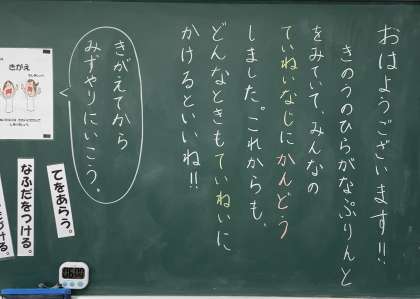 おはようございます!!
きのうのひらがなぷりんと
をみていて、みんなの
ていねいなじにかんどう
しました。これからも、
どんなときもていねいに
かけるといいね!!
きがえてから
みずやりにいこう。
きがえ
てをあらう。
なふだをつける。
06:00